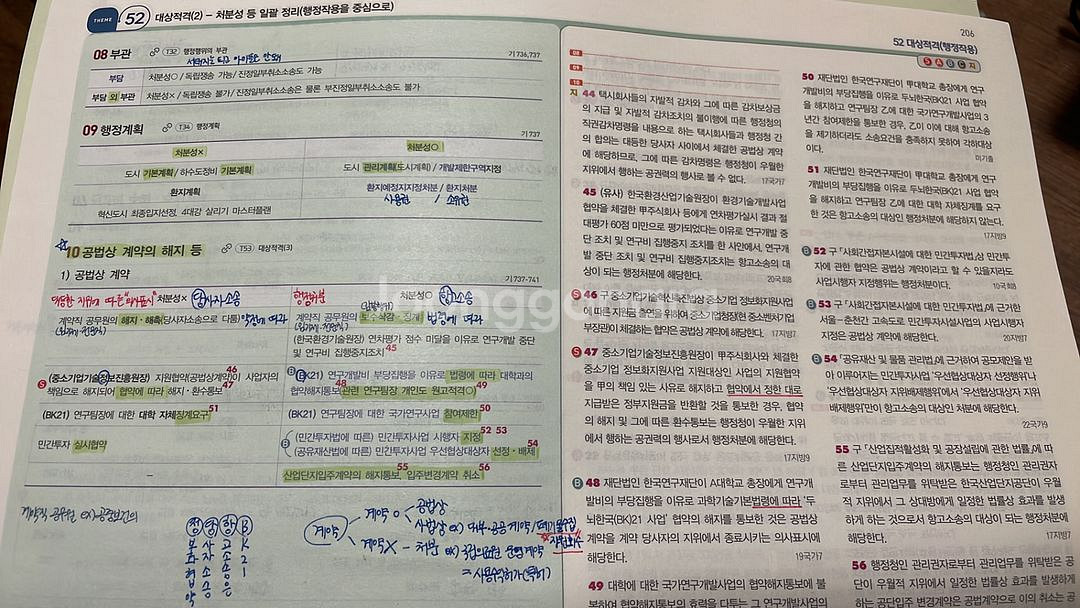 THEME 52 대상적격(2) - 처분성 등 일괄 정리(행정작용을 중심으로)
08 부관
T32 행정행위의 부관
기736,737
부담
처분성○ / 독립쟁송 가능 / 진정일부취소소송도 가능
부담 외 부관
처분성× / 독립쟁송 불가 / 진정일부취소소송은 물론 부진정일부취소소송도 불가
09 행정계획
T34 행정계획
기737
처분성×
처분성○
도시 기본계획 / 하수도정비 기본계획
도시 관리계획(도시계획) / 개발제한구역지정
환지계획
환지예정지지정처분 / 환지처분
사용권 / 소유권
혁신도시 최종입지선정, 4대강 살리기 마스터플랜
10 공법상 계약의 해지 등
T53 대상적격(3)
1) 공법상 계약
기737-741
대등한 지위에 따른 "의사표시" 처분성× 당사자소송
행정처분 처분성○ 항고소송
계약직 공무원의 해지·해촉(당사자소송으로 다툼)
계약직 공무원의 보수삭감·징계 법령에 따라
(한국환경공단원장) 연차평가 점수 미달을 이유로 연구개발 중단
및 연구비 집행중지조치 45
S (중소기업기술정보진흥원장) 지원협약(공법상계약)이 사업자의 46
책임으로 해지되어 협약에 따라 해지·환수통보 47
B (BK21) 연구개발비 부당집행을 이유로 법령에 따라 대학과의
협약해지통보 48 (관련 연구팀장 개인도 원고적격○) 49
(BK21) 연구팀장에 대한 대학 자체징계요구 51
(BK21) 연구팀장에 대한 국가연구사업 참여제한 50
민간투자 실시협약
B (민간투자법에 따른) 민간투자사업 시행자 지정 52 53
(공유재산법에 따른) 민간투자사업 우선협상대상자 선정·배제 54
-
산업단지입주계약의 해지통보, 55 입주변경계약 취소 56
계약 계약○ 공법상
계약× - 처분
206
52 대상적격(행정작용)
S A B C 지
08
09
10
지 44 택시회사들의 자발적 감차와 그에 따른 감차보상금
의 지급 및 자발적 감차조치의 불이행에 따른 행정청의
직권감차명령을 내용으로 하는 택시회사들과 행정청 간
의 합의는 대등한 당사자 사이에서 체결한 공법상 계약
에 해당하므로, 그에 따른 감차명령은 행정청이 우월한
지위에서 행하는 공권력의 행사로 볼 수 없다. 17국가7
45 (유사) 한국환경산업기술원장이 환경기술개발사업
협약을 체결한 甲주식회사 등에게 연차평가실시 결과 절
대평가 60점 미만으로 평가되었다는 이유로 연구개발 중
단 조치 및 연구비 집행중지 조치를 한 사안에서, 연구개
발 중단 조치 및 연구비 집행중지조치는 항고소송의 대
상이 되는 행정처분에 해당한다. 20국회8
S 46 구 중소기업기술혁신촉진법상 중소기업 정보화지원사업
에 따른 지원금 출연을 위하여 중소기업청장(현 중소벤처기업
부장관)이 체결하는 협약은 공법상 계약에 해당한다. 17지방7
S 47 중소기업기술정보진흥원장이 甲주식회사와 체결한
중소기업 정보화지원사업 지원대상인 사업의 지원협약
을 甲의 책임 있는 사유로 해지하고 협약에서 정한 대로
지급받은 정부지원금을 반환할 것을 통보한 경우, 협약
의 해지 및 그에 따른 환수통보는 행정청이 우월한 지위
에서 행하는 공권력의 행사로서 행정처분에 해당한다.
17지방9
B 48 재단법인 한국연구재단이 A대학교 총장에게 연구개
발비의 부당집행을 이유로 과학기술기본법령에 따라 '두
뇌한국(BK)21 사업' 협약의 해지를 통보한 것은 공법상
계약을 계약 당사자의 지위에서 종료시키는 의사표시에
해당한다. 19국가7
49 대학에 대한 국가연구개발사업의 협약해지통보에 불
50 재단법인 한국연구재단이 甲대학교 총장에게 연구
개발비의 부당집행을 이유로 두뇌한국(BK)21 사업 협약
을 해지하고 연구팀장 乙에 대한 국가연구개발사업의 3
년간 참여제한을 통보한 경우, 乙이 이에 대해 항고소송
을 제기하더라도 소송요건을 충족하지 못하여 각하대상
이다. 미기출
51 재단법인 한국연구재단이 甲대학교 총장에게 연구
개발비의 부당집행을 이유로 두뇌한국(BK)21 사업 협약
을 해지하고 연구팀장 乙에 대한 대학 자체징계를 요구
한 것은 항고소송의 대상인 행정처분에 해당하지 않는다.
17지방9
B 52 구 「사회간접자본시설에 대한 민간투자법」상 민간투
자에 관한 협약은 공법상 계약이라고 할 수 있을지라도
사업시행자 지정행위는 행정처분이다. 10국회8
B 53 구 「사회간접자본시설에 대한 민간투자법」에 근거한
서울-춘천간 고속도로 민간투자시설사업의 사업시행자
지정은 공법상 계약에 해당한다. 20지방7
B 54 「공유재산 및 물품 관리법」에 근거하여 공모제안을 받
아 이루어지는 민간투자사업 '우선협상대상자 선정행위'나
'우선협상대상자 지위배제행위'에서 '우선협상대상자 지위
배제행위'만이 항고소송의 대상인 처분에 해당한다.
22국가9
55 구 「산업집적활성화 및 공장설립에 관한 법률」에 따
른 산업단지입주계약의 해지통보는 행정청인 관리권자
로부터 관리업무를 위탁받은 한국산업단지공단이 우월
적 지위에서 그 상대방에게 일정한 법률상 효과를 발생
하게 하는 것으로서 항고소송의 대상이 되는 행정처분에
해당한다. 17지방7
56 행정청인 관리권자로부터 관리업무를 위탁받은 공
단이 우월적 지위에서 일정한 법률상 효과를 발생하게
하는 공단입주 변경계약은 공법계약으로 이의 취소는 공